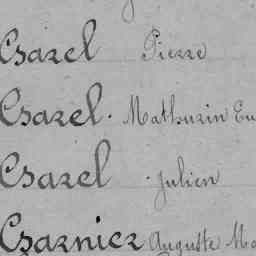 Charel Pierre
Charel. Mathurin Eu
Charel. Julien
Charnier Auguste Ma